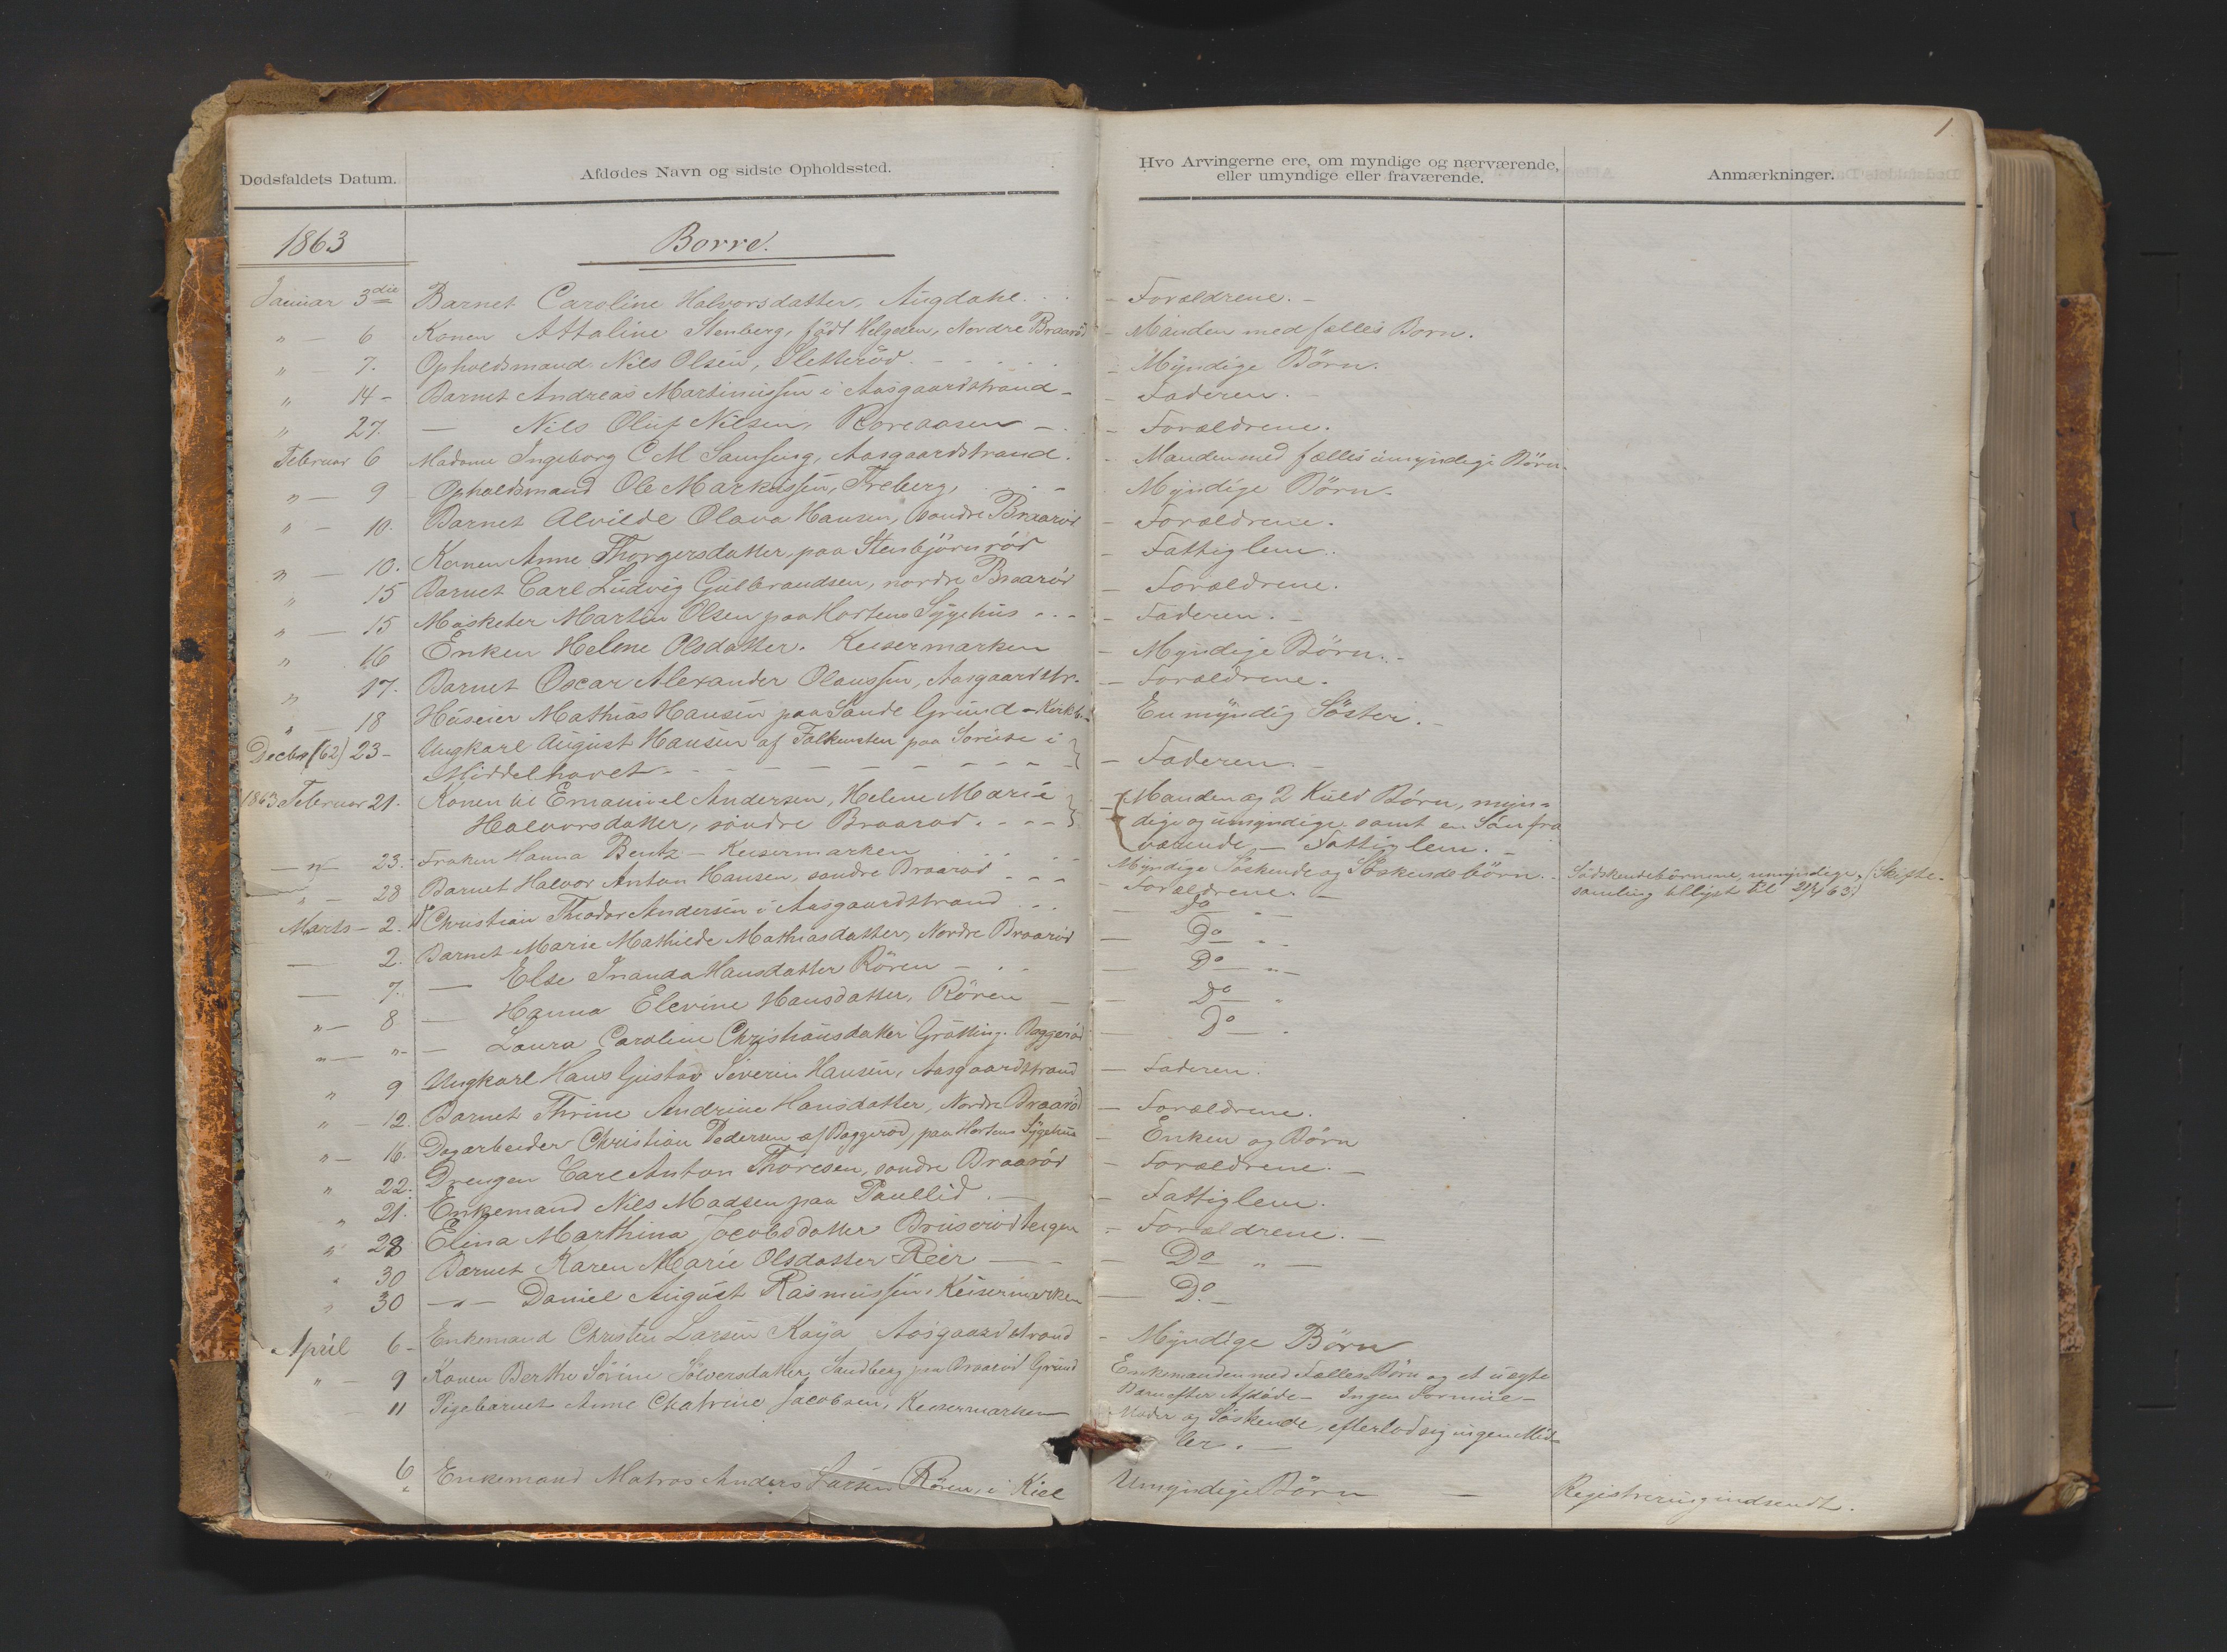 1
Dødsfaldets Datum.
Afdødes Navn og sidste Opholdssted.
Hvo Arvingerne ere, om myndige og nærværende,
eller umyndige eller fraværende.
Anmærkninger.
1863
Borre.
Januar 3die Barnet Caroline Halvorsdatter, Augdahl - Forældrene. -
" - 6 Konen Attaline Stenberg, født Helgesen, Nordre Braarød - Manden med fælles Børn.
" - 7. Opholdsmand Nils Olsen, Sletterød - Myndige Børn.
" 14 - Barnet Andreas Martinussen i Aasgaardstrand - - Faderen. -
" 27. — Nils Oluf Nilsen, Roreaasen - - Forældrene.
Februar 6 Madame Ingeborg C M Samsing, Aasgaardstrand. - Manden med fælles umyndige Børn.
" - 9 Opholdsmand Ole Markussen, Freberg, - Myndige Børn.
" - 10. Barnet Alvilde Olava Hansen, søndre Braarød - Forældrene.
" - 10. Konen Anne Thorgersdatter, paa Stenbjørnrød - Fattiglem.
" 15 Barnet Carl Ludvig Gulbrandsen, nordre Braarød - Forældrene.
" - 15 Musketer Martin Olsen paa Hortens Sygehus - - - Faderen. -
" 16 Enken Helene Olsdatter. Keisermarken - Myndige Børn. -
" 17. Barnet Oscar Alexander Olaussen, Aasgaardstr. - Forældrene.
" - 18 Huseier Mathias Hansen paa Sande Grund - En myndig Søster. -
Decbr (62) 23 - Ungkarl August Hansen af Falkensten paa Søreise i
Middelhavet - - - - - Faderen. -
1863 Februar 21. Konen til Emanuel Andersen, Helene Marie - Manden og 2 Kuld Børn, myn-
Halvorsdatter, søndre Braarød. - - - dige og umyndige samt en Søn fra
værende. - Fattiglem. -
— " — 23. - Frøken Hanna Bentz - Keisermarken - Myndige Søskende og Søskendebørn. - Södskendebörnene, umyndige, (Skifte-
samling tillyst til 21/4 63.)
" - 28 Barnet Halvor Anton Hansen, søndre Braarød - - - - Forældrene. -
Marts - 2. " Christian Theodor Andersen i Aasgaardstrand - - — Do " —
— 2. Barnet Marie Mathilde Mathiasdatter, Nordre Braarød — Do " -
— 7. — Else Inanda Hansdatter Røren - — Do " —
" — 8 — Hanna Elevine Hansdatter, Røren — — Do "
" — " - — Laura Caroline Christiansdatter Grøtting. Baggerød — Do .
" 9 Ungkarl Hans Gustav Severin Hansen, Aasgaardstrand - Faderen.
" - 12. Barnet Thrine Andrine Hansdatter, Nordre Braarød - Forældrene.
" - 16. Dagarbeider Christian Pedersen af Baggerød, paa Hortens Sygehus - Enken og Børn
" 22. Drengen Carl Anton Thoresen, søndre Braarød - Forældrene. -
" 21. Enkemand Nils Madsen paa Paullid. - - Fattiglem.
" 28 Elina Marthina Jacobsdatter Bruserød - Forældrene. —
" 30 Barnet Karen Marie Olsdatter Reir — - Do " —
" 30 — " — Daniel August Rasmussen, Keisermerken — Do. -
April 6 - Enkemand Christen Larsen Kaja Aasgaardstrand - Myndige Børn
" - 9 Konen Berthe Sørine Sølversdatter, Sandberg paa Braarød Grund Enkemanden med Fælles Børn og et uægte
Barn efter Afdøde - Ingen Formue -
11 Pigebarnet Anne Chatrine Jacobsen, Keisermarken Moder og Søskende, efterlod sig ingen Mid-
ler. —
" 6 Enkemand Matros Anders Larsen Røren, i Kiel Umyndige Børn — Registrering indsendt.